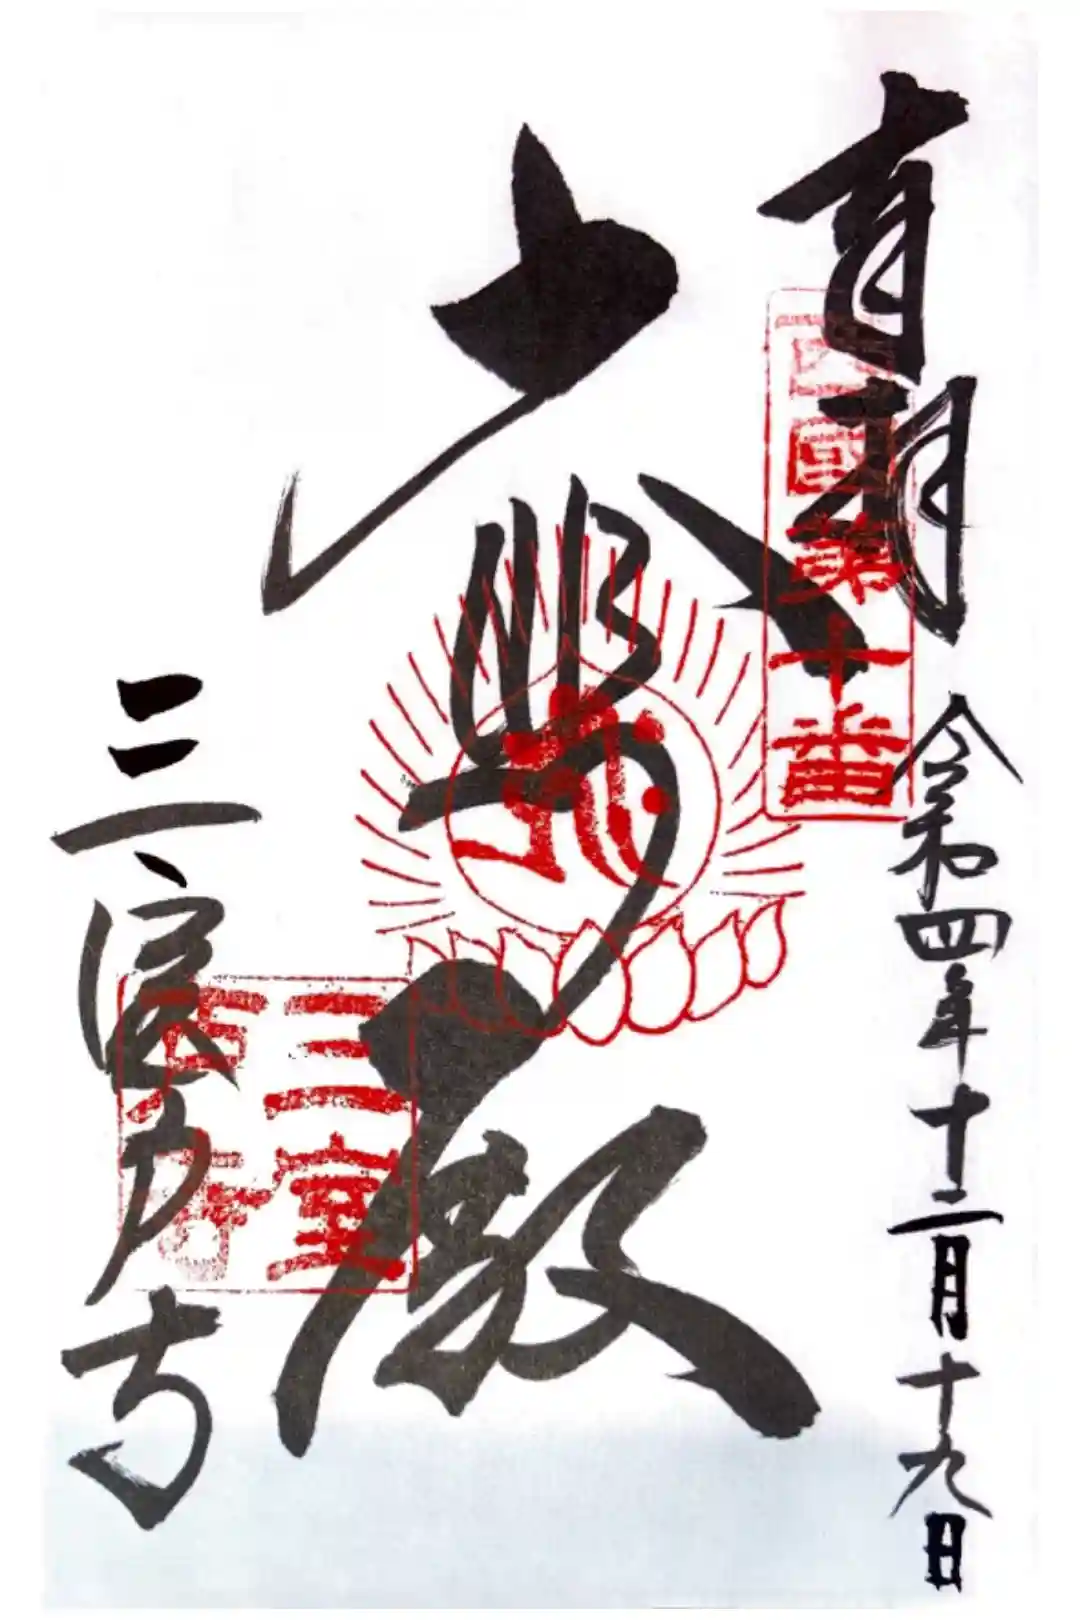 奉拝
西國第十番
令和四年十二月十九日
大悲殿
三室戸寺
三室
戸寺